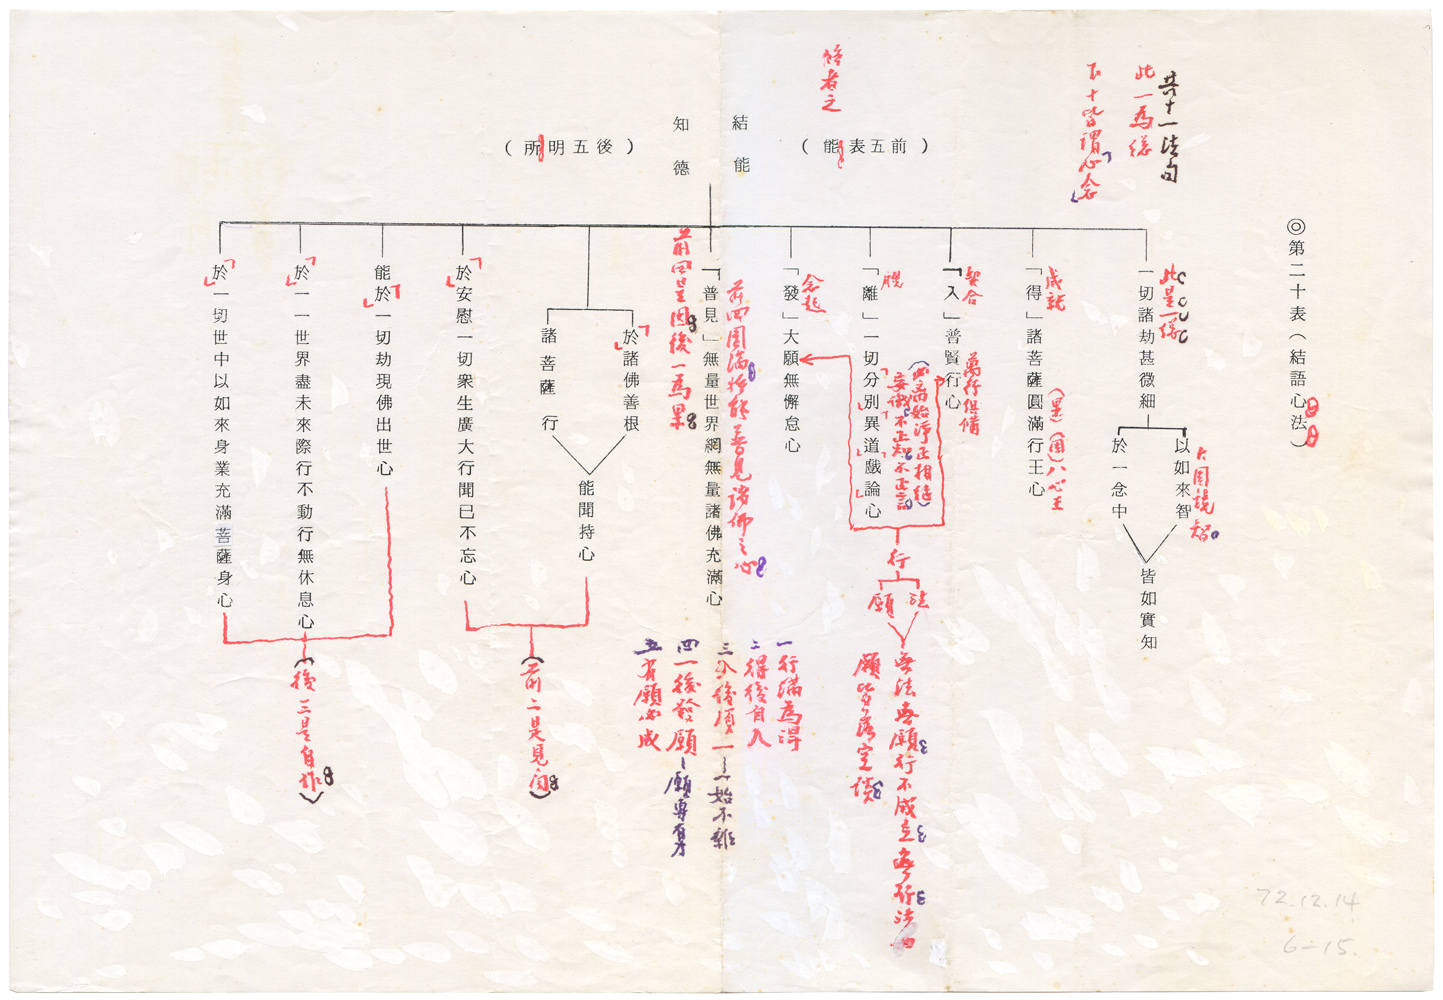 共十一法句
此一為總
下十皆謂「心念」
修者之
◎第二十表（結語心法）
結能
知德
（前五表能）
（後五明所）
一切諸劫甚微細
此是一總
以如來智
大圓鏡智。
於一念中
皆如實知
「得」諸菩薩圓滿行王心
成就
（里）（用）八心王
「入」普賢行心
契合
萬行俱備
「離」一切分別異道戲論心
脫
妄俄不正知不正言
行
法
願
無法無願行不成立無行法
願皆落空談
「發」大願無懈怠心
念起
「普見」無量世界網無量諸佛充滿心
前四圓滿始能普見諸佛之心
前四是因後一為果
一行滿為得
二得後自入
四一後發願－願專有力
五有願必成
「於」諸佛善根
諸菩薩行
能聞持心
「於」安慰一切衆生廣大行聞已不忘心
（前二是見聞）
能「於」一切劫現佛出世心
「於」一一世界盡未來際行不動行無休息心
「於」一切世中以如來身業充滿菩薩身心
（後三是自作）
72.12.14
6-15.